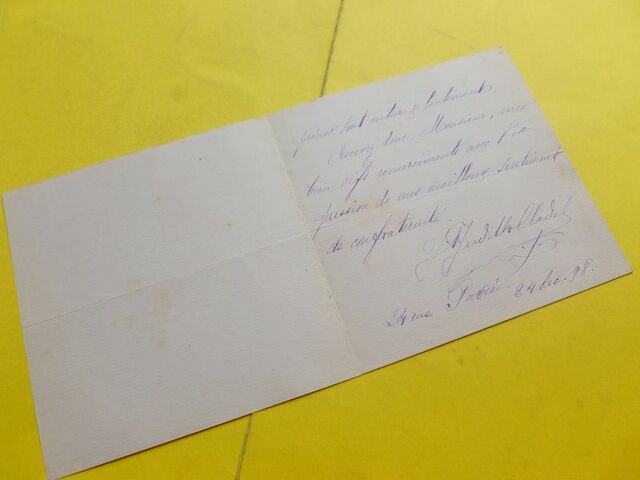 tout entier & lentement.
Recevez donc, Monsieur, mes
bien vifs remerciements, avec l'ex-
pression de mes meilleurs sentiments
de confraternité.
Judith Cladel
24 rue 24 déc. 98.